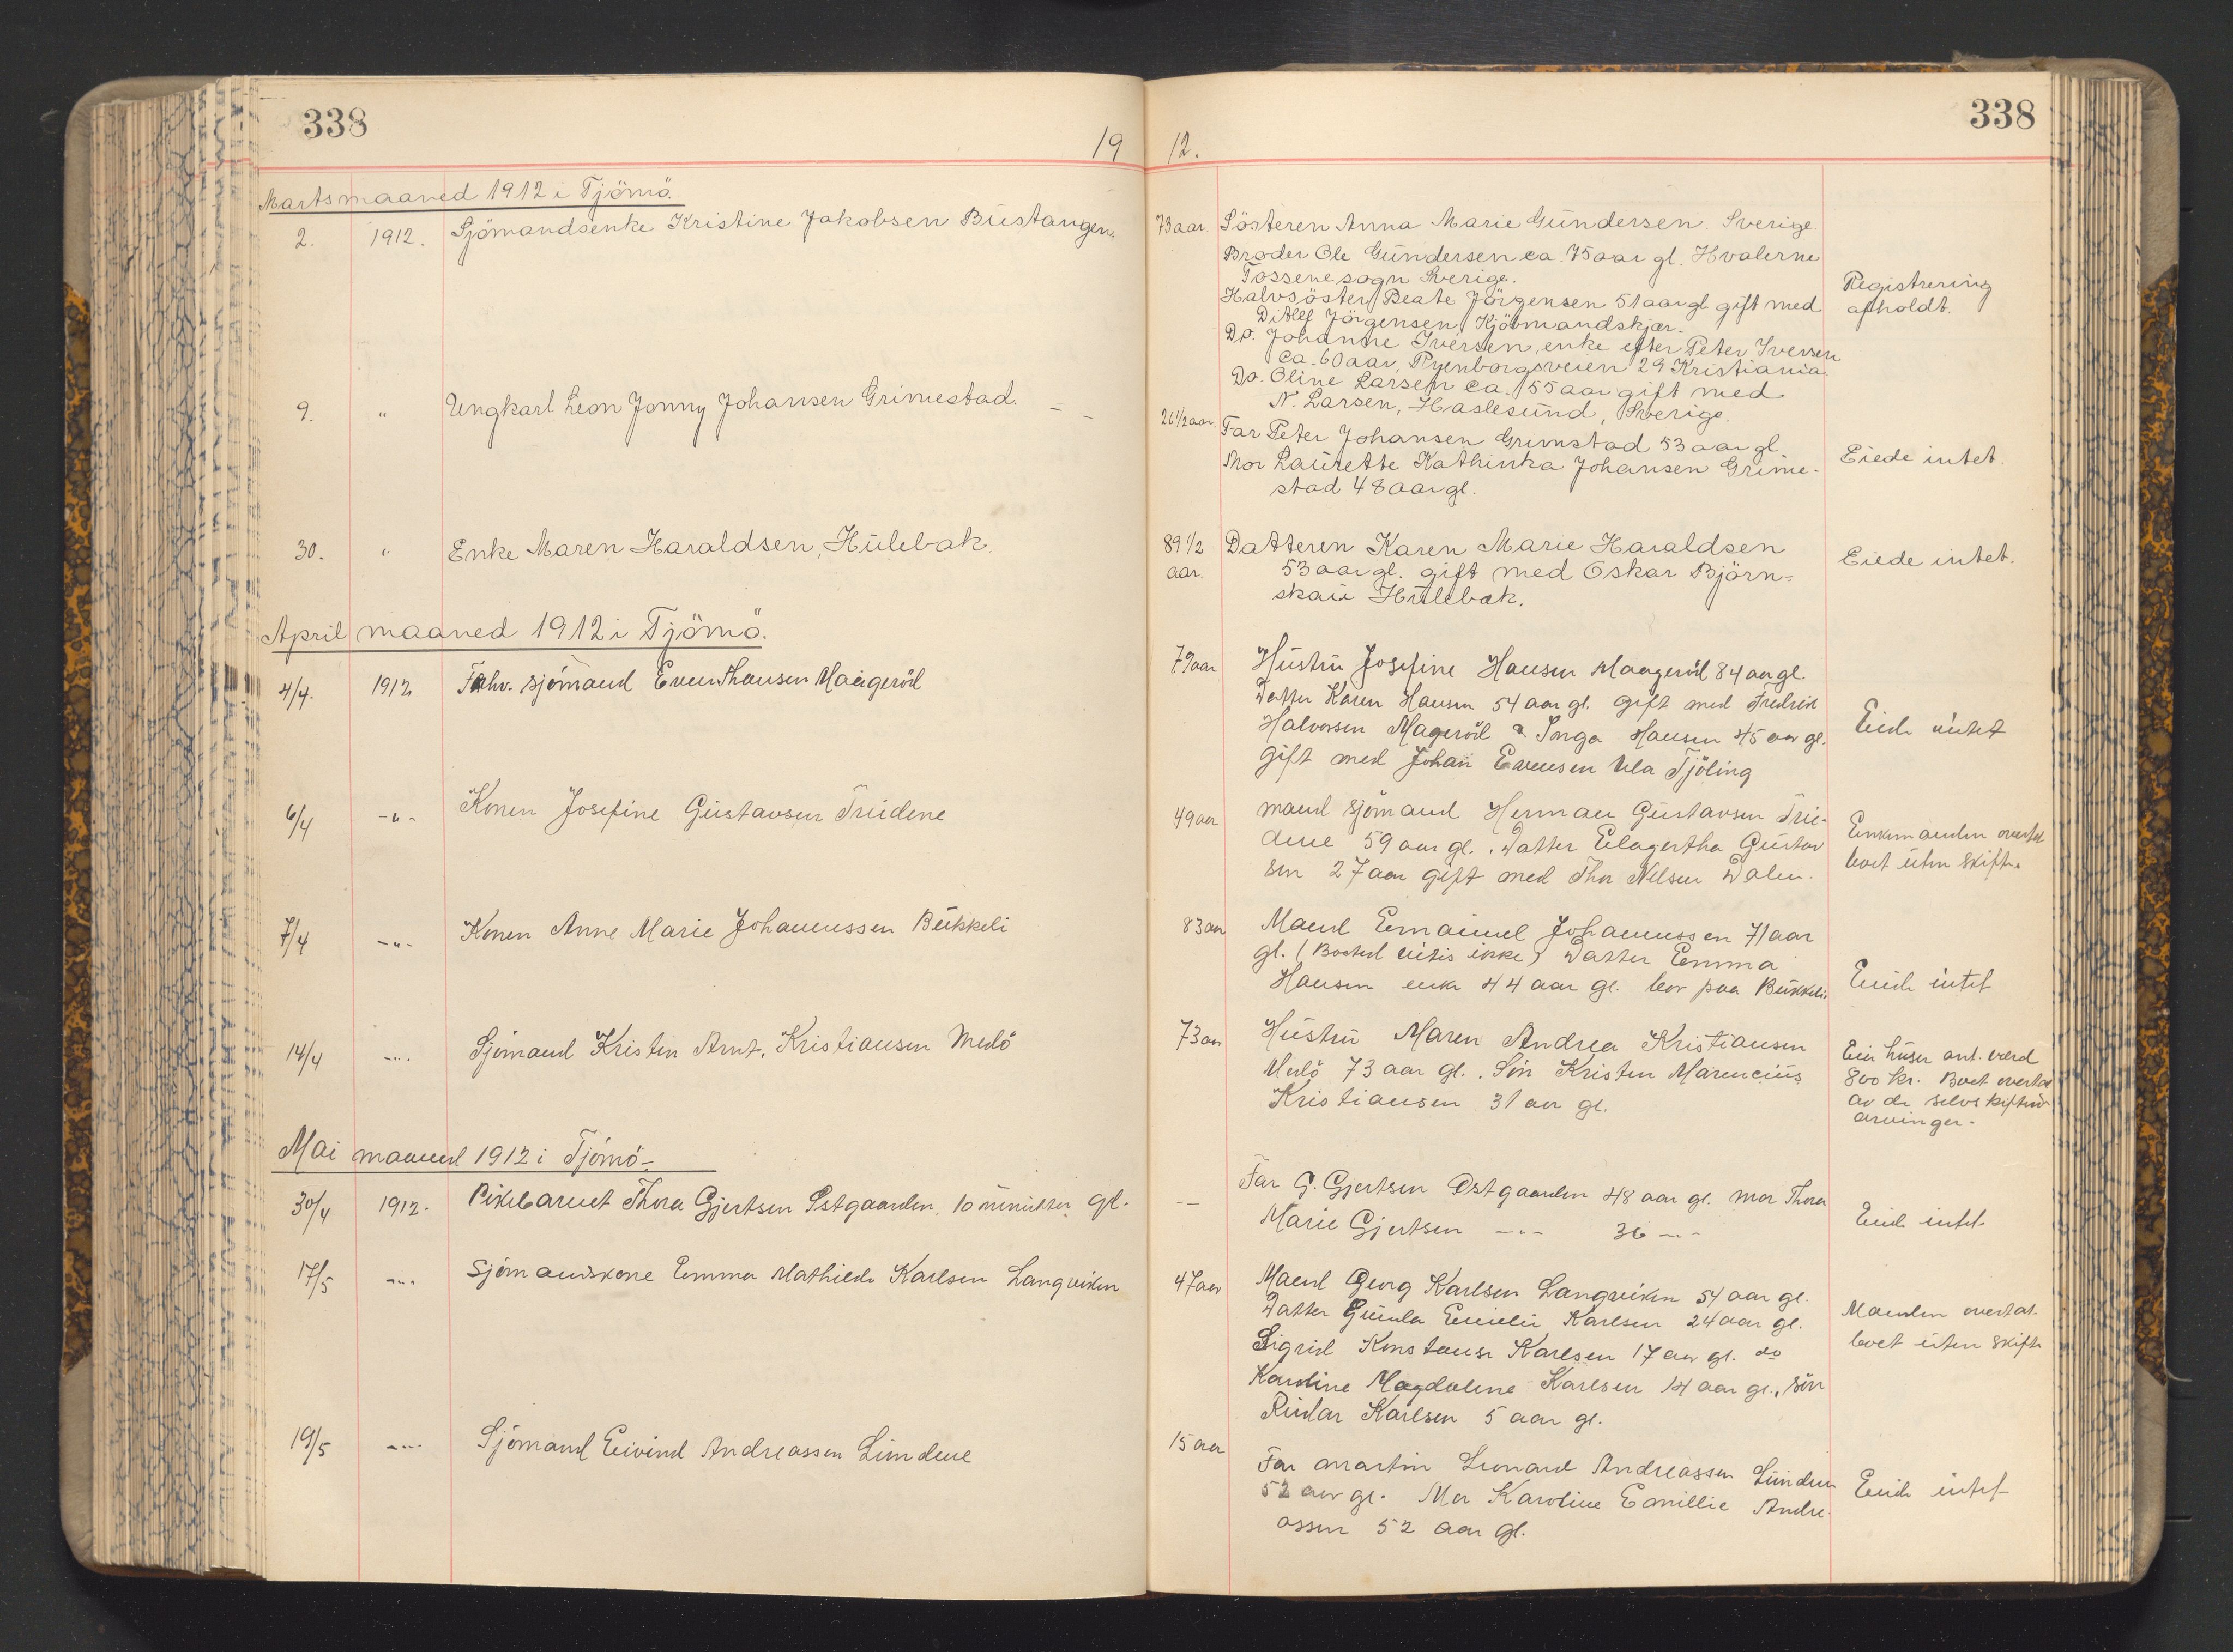 338
338
19 12.
Martsmaaned 1912 i Tjömö.
2. 1912. Sjömandsenke Kristine Jakobsen Bustangen.
73 aar. Sösteren Anna Marie Gundersen. Sverige.
Broder Ole Gundersen ca. 75 aar gl. Hvalerne
Tossene sogn Sverige.
Halvsöster Beate Jörgensen 51 aar gl gift med
Ditlef Jörgensen, Kjöbmandskjær.
Do. Johanne Iversen, enke efter Peter Iversen
ca. 60 aar, Ryenborgsveien 29 Kristiania.
Do. Oline Larsen ca. 55 aar gift med
N. Larsen, Haslesund, Sverige.
Registrering
afholdt.
9. " Ungkarl Leon Jonny Johansen Grimestad. - -
26 1/2 aar. Far Peter Johansen Grimstad 53 aar gl.
Mor Laurette Kathinka Johansen Grime-
stad 48 aar gl.
Eiede intet.
30. " Enke Maren Haraldsen, Hulebak.
89 1/2
aar.
Datteren Karen Marie Haraldsen
53 aar gl. gift med Oskar Björn-
skau Hulebak.
Eiede intet.
April maaned 1912 i Tjömö.
4/4. 1912 Fhv. sjömand Even Hansen Maageröd
79 aar Hustru Josefine Hansen Maageröd 84 aar gl.
Datter Karen Hansen 54 aar gl. gift med Fredrik
Halvorsen Mageröd & Inga Hansen 45 aar gl.
gift med Johan Evensen Ula Tjöling
Eiede intet
6/4 -"- Konen Josefine Gustavsen Treidene
49 aar mand sjömand Herman Gustavsen Trei-
dene 59 aar gl. Datter Elagertha Gustav
sen 27 aar gift med Thor Nelsen Dalen.
Enkemanden overtat
boet uten skifte.
7/4 -"- Konen Anne Marie Johannessen Bukkeli
83 aar Mand Emanuel Johannessen 71 aar
gl. (Bosted vites ikke) Datter Emma
Hansen enke 44 aar gl. bor paa Bukkeli
Eiede intet
14/4 -"- Sjömand Kristen Arnt. Kristiansen Medö
73 aar Hustru Maren Andrea Kristiansen
Medö 73 aar gl. Sön Kristen Marencius
Kristiansen 31 aar gl.
Eier huser ant. værd
800 kr. Boet overtat
av de selvskiftende
arvinger.
Mai maaned 1912 i Tjömö-
30/4 1912. Pikebarnet Thora Gjertsen Östgaarden. 10 minutter gl.
- Far G. Gjertsen Östgaarden 48 aar gl. mor Thora
Marie Gjertsen -"- 36 -"-
Eiede intet
17/5 -"- Sjömandskone Emma Mathilde Karlsen Langviken
47 aar Mand Georg Karlsen Langviken 54 aar gl.
Datter Gunda Karlsen 24 aar gl.
Sigrid Konstanse Karlsen 17 aar gl. do
Karoline Magdalene Karlsen 14 aar gl., sön
Reidar Karlsen 5 aar gl.
Manden overtat
boet uten skifte
19/5 -"- Sjömand Eivind Andreassen Lundene
15 aar Far Martin Leonard Andreassen Lunden
52 aar gl. Mor Karoline Emillie Andre-
assen 52 aar gl.
Eiede intet